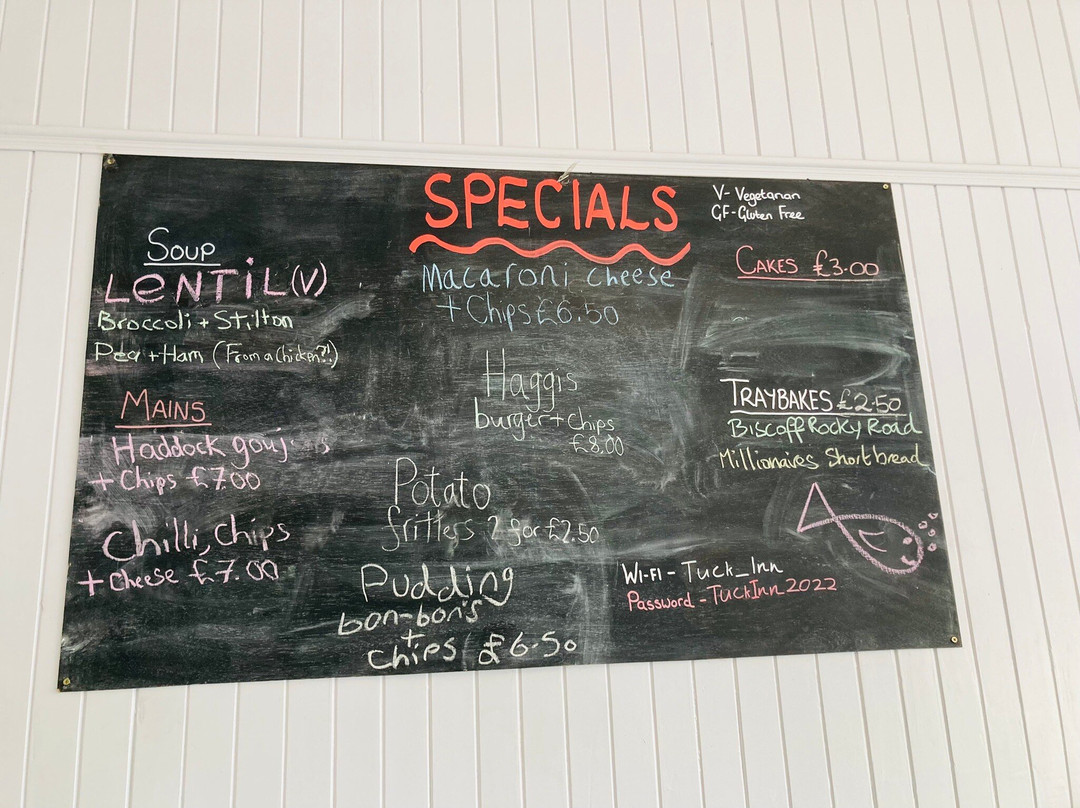 SPECIALS
V- Vegetarian
GF-Gluten Free
Soup
LENTIL (V)
Broccoli + Stilton
Pea + Ham (From a chicken?!)
MAINS
Haddock
+ Chips £7.00
Chilli, Chips
+ Cheese £7.00
Macaroni cheese
+ Chips £6.50
Haggis
burger + chips
£8.00
Potato
fritters 2 for £2.50
Pudding
bon-bon's
+
chips £6.50
CAKES £3.00
TRAYBAKES £2.50
Biscoff Rocky Road
Millionaires Shortbread
WI-FI - Tuck_Inn
Password - TuckInn2022